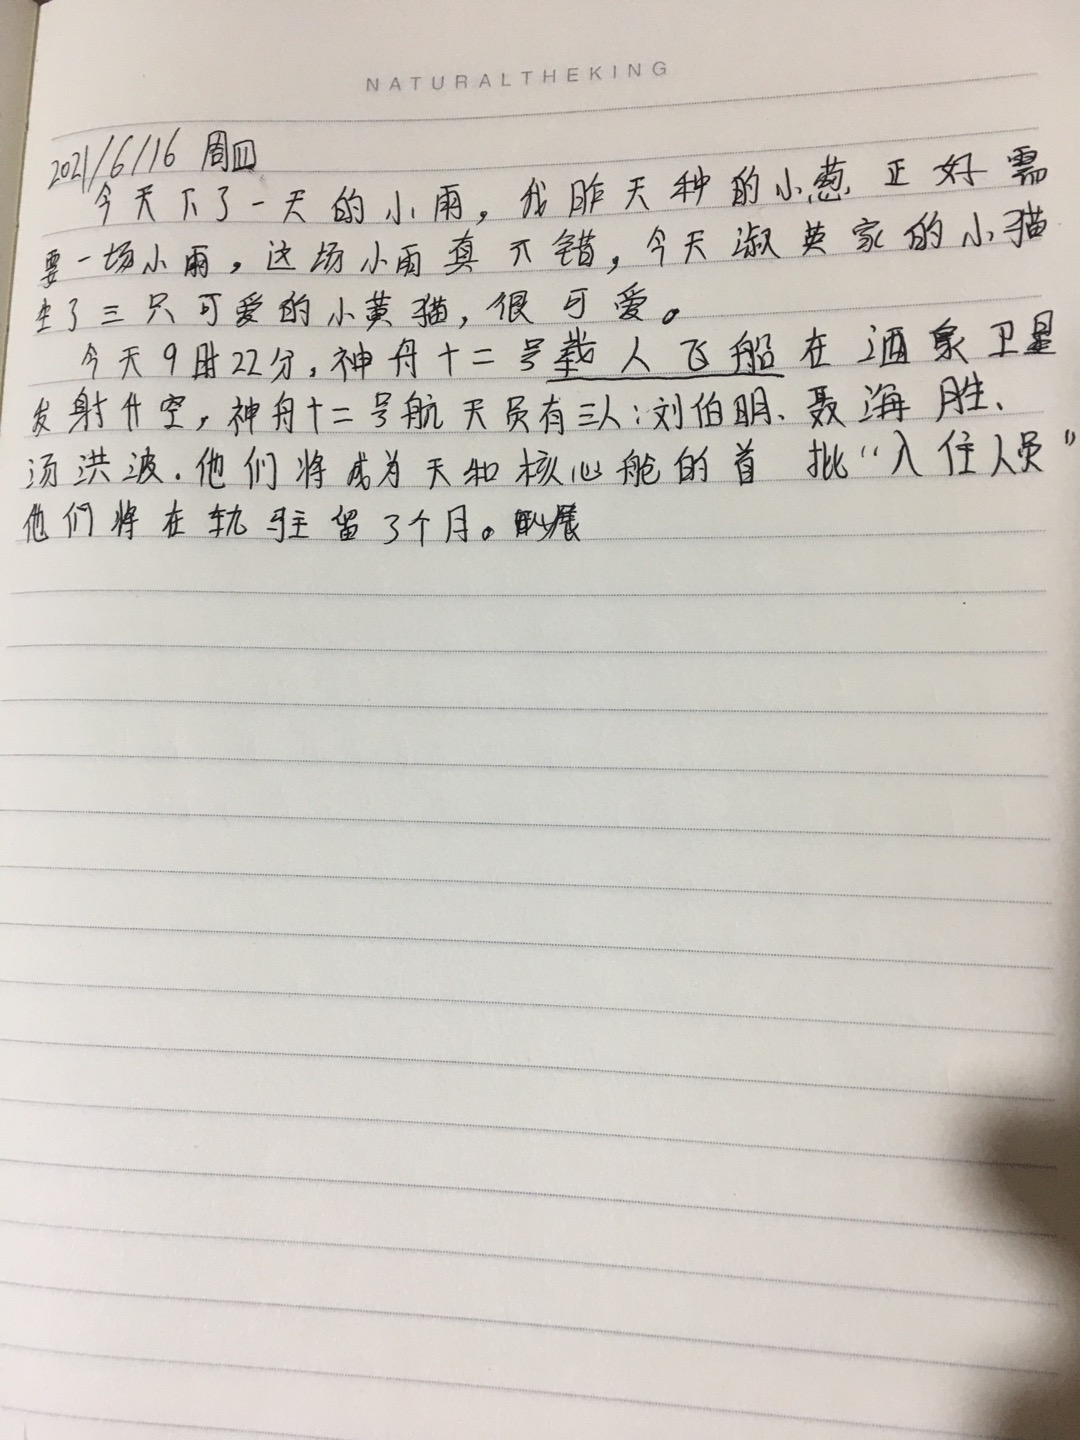 NATURALTHEKING
2021/6/16 周四
今天下了一天的小雨，我昨天种的小葱正好需
要一场小雨，这场小雨真不错，今天淑英家的小猫
生了三只可爱的小黄猫，很可爱。
今天9时22分，神舟十二号载人飞船在酒泉卫星
发射升空，神舟十二号航天员有三人：刘伯明、聂海胜、
汤洪波.他们将成为天和核心舱的首批“入住人员”
他们将在轨驻留3个月。